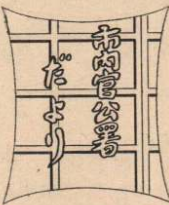 市内官公署
だより